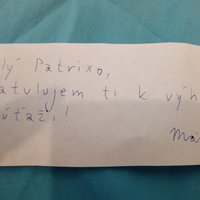 lý Patrixo,
atulujem ti k výh
úťaži!
Má